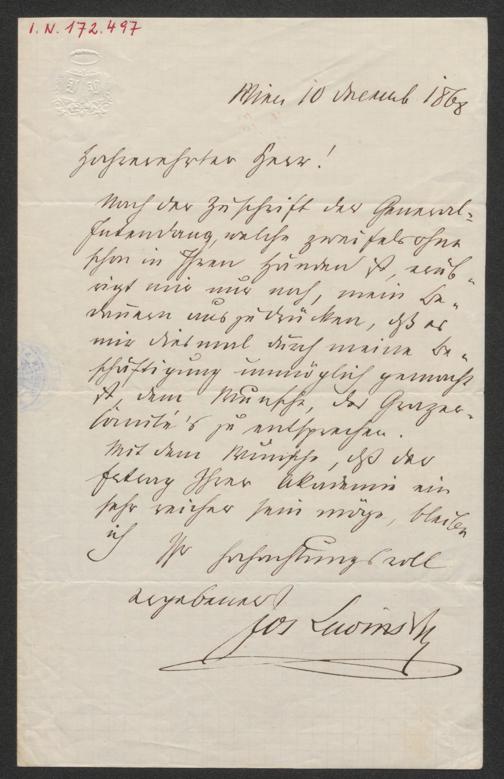 I.N. 172.497
Wien 10 Decemb 1868
Hochverehrter Herr!
Nach der Zuschrift der General-
Intendanz, welche zweifelsohne
schon in Ihren Händen ist, erüb-
rigt mir nur noch, mein Be-
dauern auszudrücken, daß es
mir diesmal durch meine Be-
schäftigung unmöglich gemacht
ist, dem Wunsche, des Grazer-
Comité's zu entsprechen.
Mit dem Wunsche, daß der
Ertrag Ihrer Akademie ein
sehr reicher sein möge, bleibe
ich Ihr hochachtungsvoll
ergebenster
Jos Lewinsky